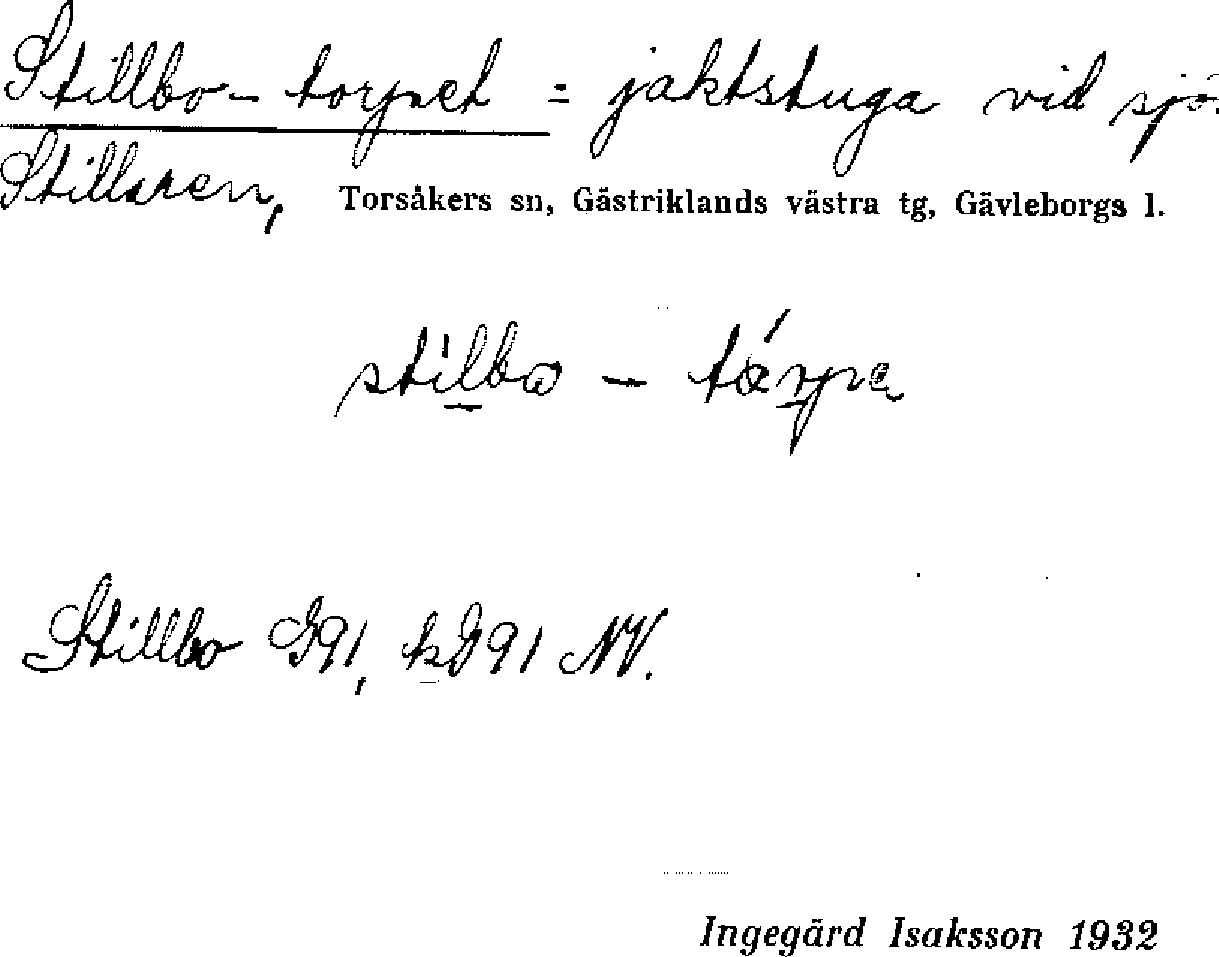 Stillbo-torpet = jaktstuga vid sjö.
Stillaren, Torsåkers sn, Gästriklands västra tg, Gävleborgs l.
Stillbo G91, k G91 NV.
Ingegärd Isaksson 1932